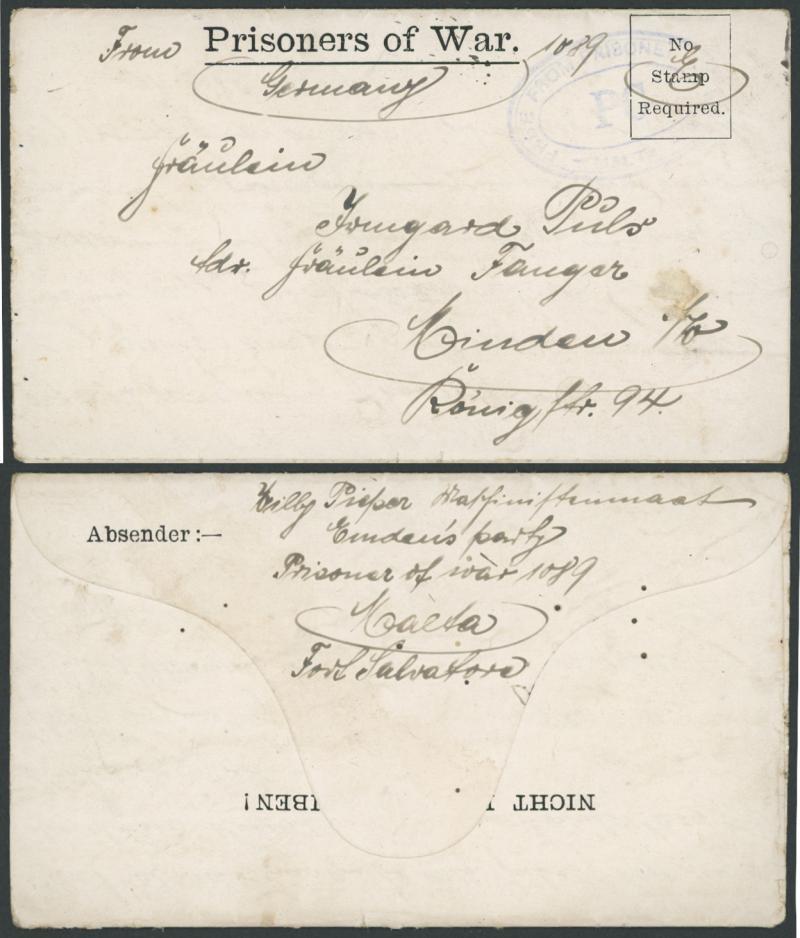 From Prisoners of War. 1089
Germany
No
Stamp
Required.
E
FREE FROM PRISONE
P
MALTA
Fräulein
Irmgard Puls
Adr. Fräulein Fanger
Minden i/W
Königstr. 94.
Willy Pieper Maschinistenmaat
Absender:—
Emden's party
Prisoner of war 1089
Malta
Fort Salvatore
NICHT
IBEN!